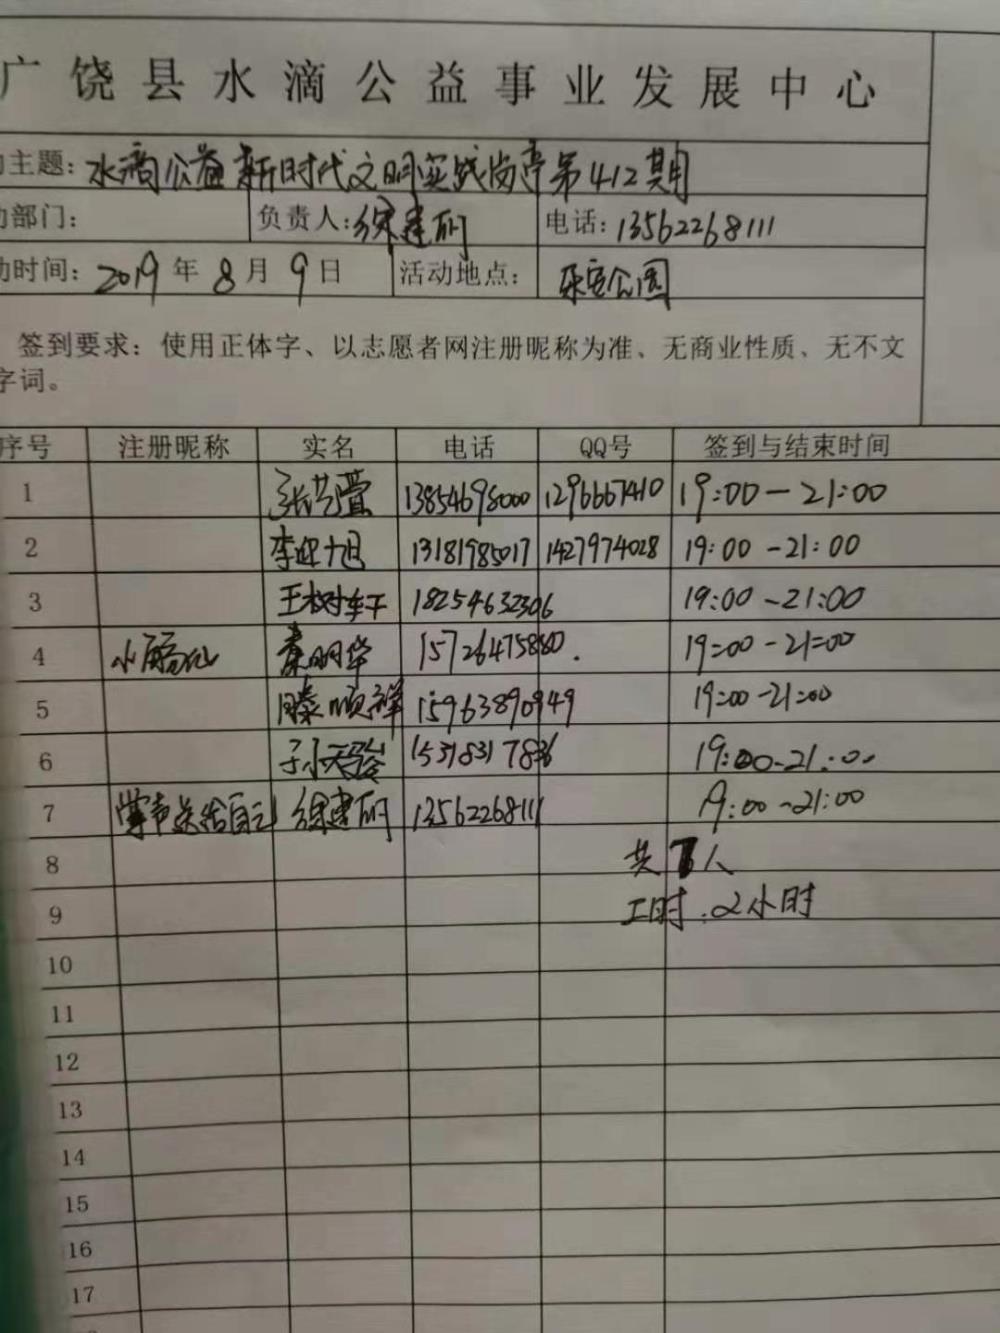 广饶县水滴公益事业发展中心
主题：水滴公益新时代文明实践岗亭第412期
部门： 负责人：徐建丽 电话：13562268111
时间：2019年8月9日 活动地点：乐安公园
签到要求：使用正体字、以志愿者网注册昵称为准、无商业性质、无不文
字词。
序号 注册昵称 实名 电话 QQ号 签到与结束时间
1 13854698000 1296667410 19:00-21:00
2 李迎旭 13181985017 1427974028 19:00-21:00
3 王树轩 18254632306 19:00-21:00
4 秦明华 15726475880. 19:00-21:00
5 滕顺祥 15963890949 19:00-21:00
6 15318317836 19:00-21:00
7 掌声送给自己 徐建丽 13562268111 19:00-21:00
8 共7人
9 工时:2小时
10
11
12
13
14
15
16
17